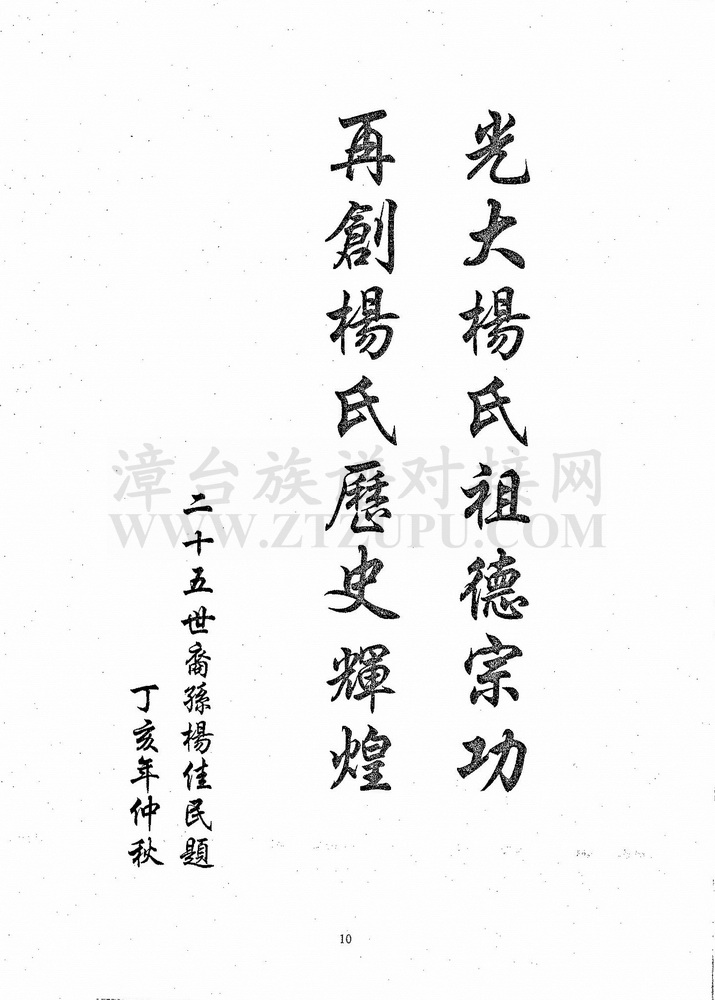 光大楊氏祖德宗功
再創楊氏歷史輝煌
二十五世裔孫楊佳民題
丁亥年仲秋
漳台族谱对接网
WWW.ZTZUPU.COM
10